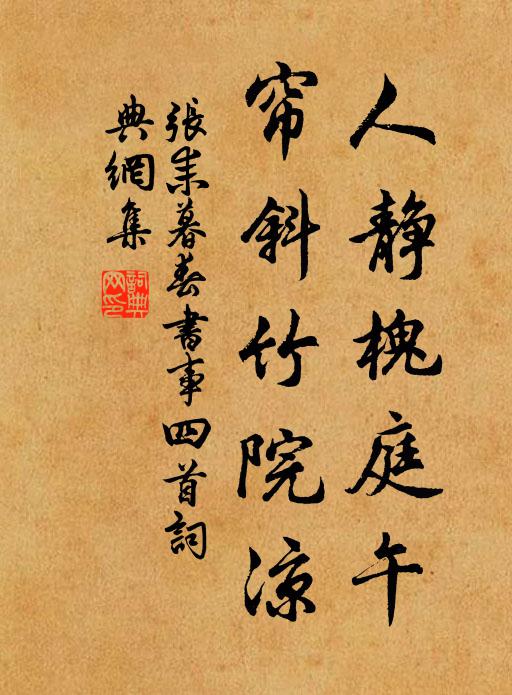 人静槐庭午
帘斜竹院凉
張耒暮春書事四首詞
典網集
詞典
网印